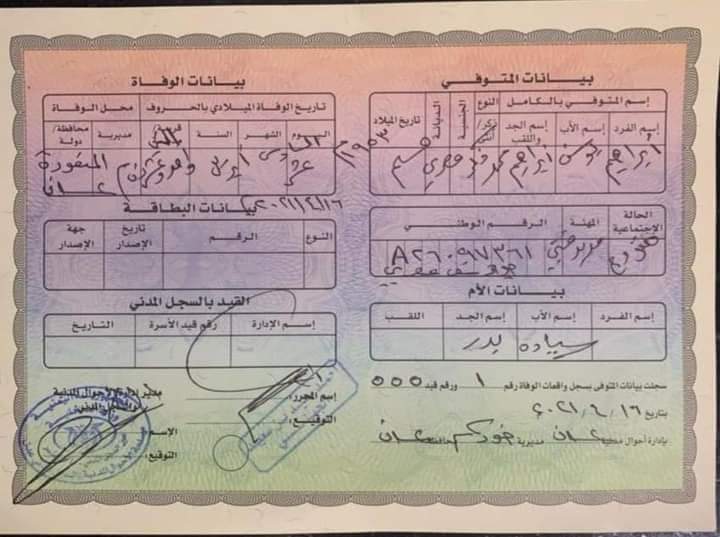 بيانات المتوفي
إسم المتوفي بالكامل
النوع
الجنسية
الديانة
تاريخ الميلاد
إسم الفرد
إسم الأب
إسم الجد واللقب
ذكر/أنثى
ابراهيم
ابراهيم محمد
ذكر
مصري
مسلم
١٩٥٣
الحالة الإجتماعية
المهنة
الرقم الوطني
متزوج
A٢٦٠٩٧٣٦١
بيانات الأم
إسم الفرد
إسم الأب
إسم الجد
اللقب
سياده
بدر
سجلت بيانات المتوفى بسجل واقعات الوفاة رقم ١ ورقم قيد ٥٥٥
بتاريخ ١٦/٤/٢٠٢١
بإدارة أحوال مدنية عدن مديرية خورمكسر محافظة عدن
بيانات الوفاة
تاريخ الوفاة الميلادي بالحروف
محل الوفاة
اليوم
الشهر
السنة
مديرية
محافظة/دولة
السادس عشر
ابريل
واحد وعشرين
المنصورة
عدن
١٦/٤/٢٠٢١م
بيانات البطاقة
النوع
الرقم
تاريخ الإصدار
جهة الإصدار
القيد بالسجل المدني
إسم الإدارة
رقم قيد الأسرة
التاريخ
إسم المحرر:
التوقيع:
مدير إدارة الأحوال المدنية
والسجل المدني
الإسم:
التوقيع: